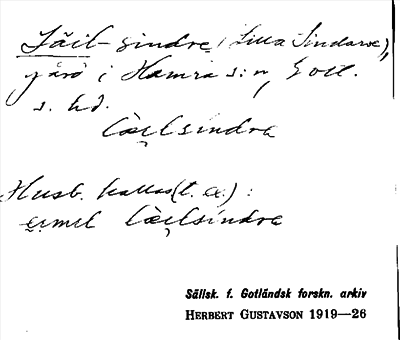 Läil-sindre (Lilla Sindarve),
gård i Hamra s:n, Gotl.
s. hd.
lą̈i̯lsindrə
Husb. kallas (t. ex.):
emil lą̈i̯lsindrə
Sällsk. f. Gotländsk forskn. arkiv
HERBERT GUSTAVSON 1919—26